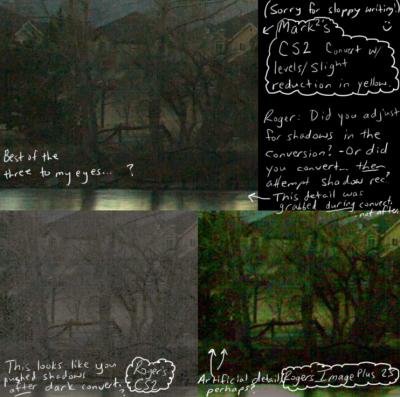 (Sorry for sloppy writing!)
Mark²'s
CS2 Convert w/
levels/slight
reduction in yellow.
Roger: Did you adjust
for shadows in the
conversion? -Or did
you convert... then
attempt shadow rec?
This detail was
grabbed during convert,
not after.
Best of the
three to my eyes... ?
This looks like you
pushed shadows
after dark convert.?
Roger's
CS2
Artificial detail
perhaps?
Rogers Image Plus 25